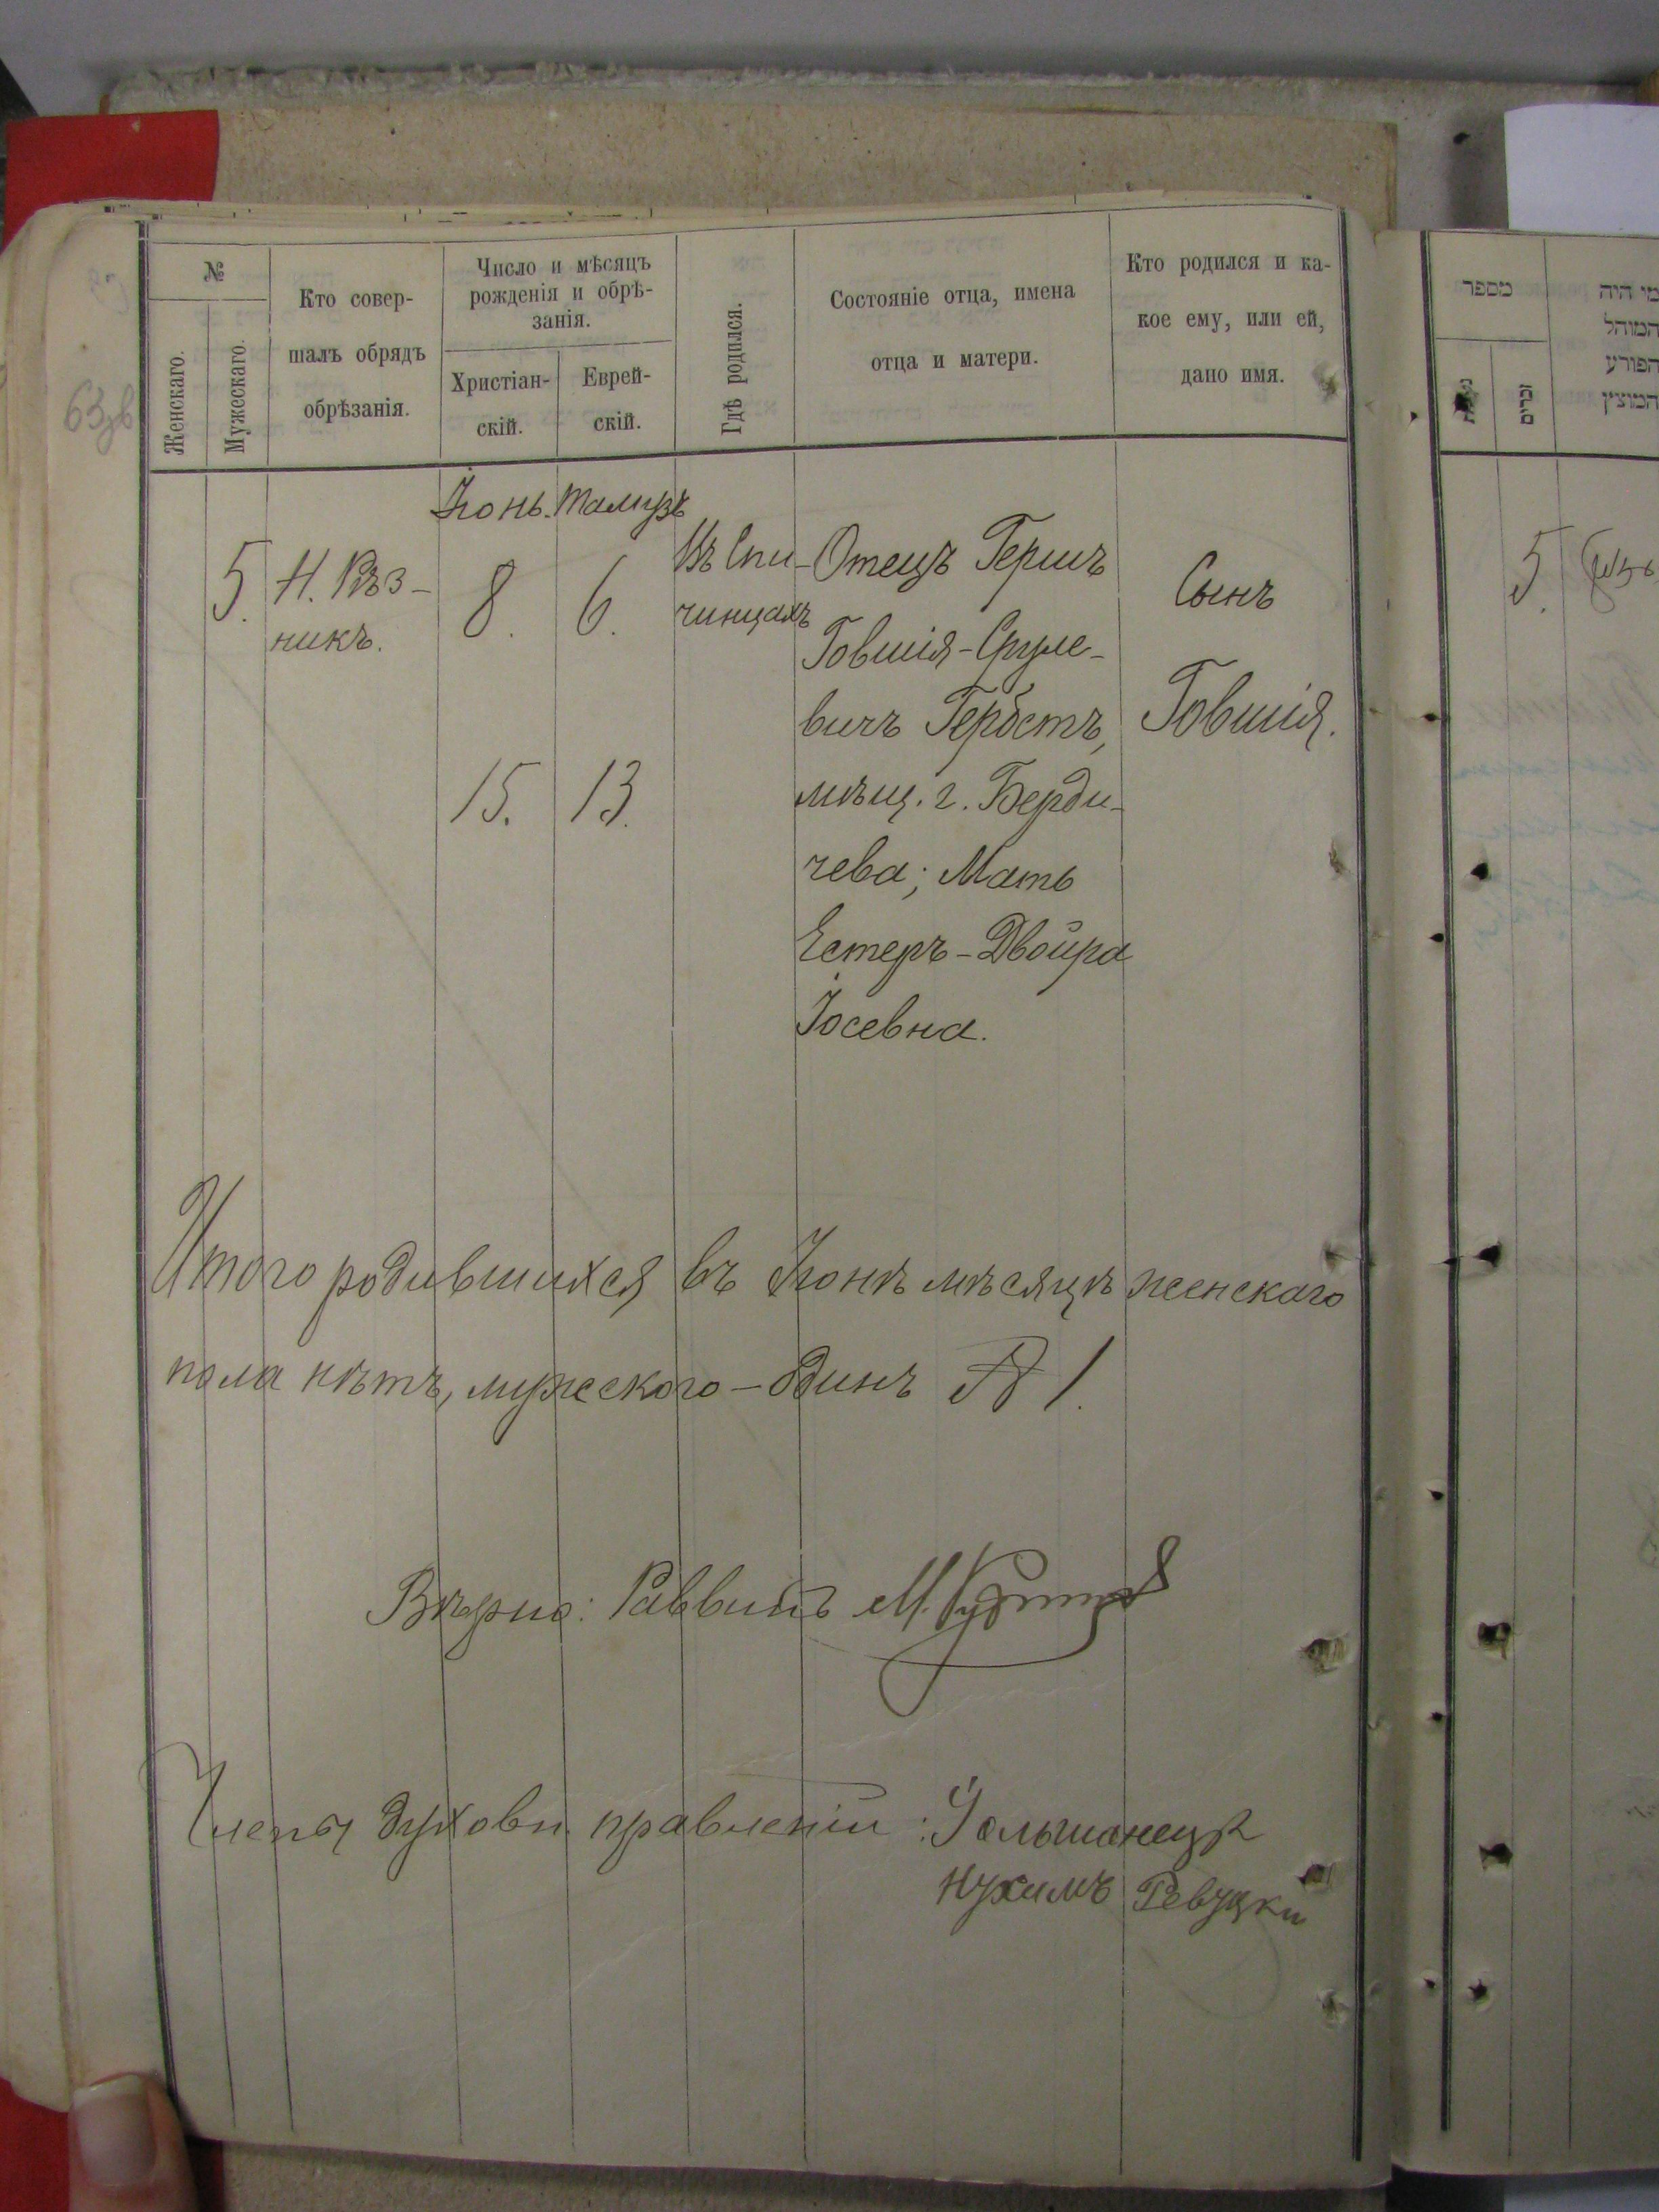 63зв
№
Женскаго.
Мужескаго.
Кто совер-
шалъ обрядъ
обрѣзанія.
Число и мѣсяцъ
рожденія и обрѣ-
занія.
Христіан-
скій.
Еврей-
скій.
Гдѣ родился.
Состояніе отца, имена
отца и матери.
Кто родился и ка-
кое ему, или ей,
дано имя.
Іюнь. Тамузъ
5. Н. Рѣз-
никъ.
8. 6.
15. 13.
Въ Спи-
чинцахъ
Отецъ Гершъ
Говшія-Сруле-
вичъ Гербстъ,
мѣщ. г. Берди-
чева; Мать
Естеръ-Двойра
Іосевна.
Сынъ
Говшія.
Итого родившихся въ Іюнѣ мѣсяцѣ женскаго
пола нѣтъ, мужескаго - одинъ № 1.
Вѣрно: Раввинъ М.
Члены духовн. правленія:
Нухимъ Ревуцки
מספר
זכרים
מי היה
המוהל
הפורע
המוצץ
5.